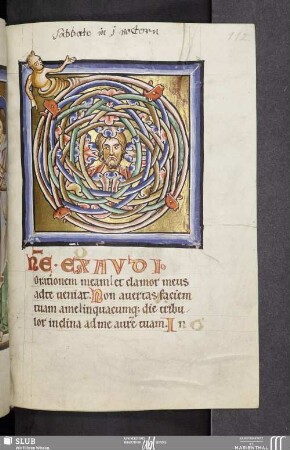 Sabbato in j nocturn
D
NE · EXAUDI
orationem meam! et clamor meus
adte veniat. Non avertas faciem
tuam ame! inquacumq; die tribu
lor inclina adme aurē tuam. In
SLUB
Wir führen Wissen.
MARIENTHAL